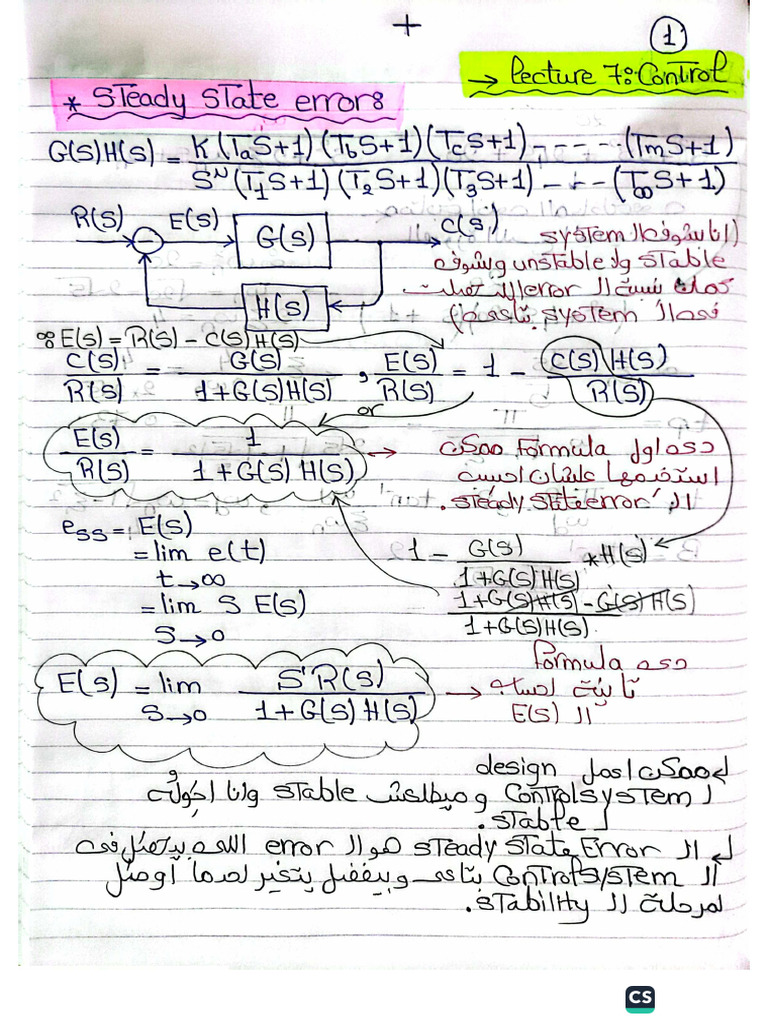 +
1
→ Lecture 7: Control
* Steady State error:
G(S)H(S) = K(TaS+1)(TbS+1)(TcS+1)----(TmS+1)
S^N(T1S+1)(T2S+1)(T3S+1)----(T∞S+1)
R(S) E(S) G(S) C(S)
H(S)
(انا بشوف ال system
stable ولا unstable وبشوف
كمان نسبة ال error اللى حصلت
فى ال system بتاعى)
∴ E(S) = R(S) - C(S)H(S)
C(S)/R(S) = G(S)/1+G(S)H(S) , E(S)/R(S) = 1 - C(S)H(S)/R(S)
or
E(S)/R(S) = 1/1+G(S)H(S) →
دى اول Formula ممكن
استخدمها علشان احسب
ال steady state error.
ess = E(S)
= lim e(t)
t→∞
= lim S E(S)
S→0
1 - G(S)/1+G(S)H(S) *H(S)
1+G(S)H(S) - G(S)H(S)
1+G(S)H(S)
E(S) = lim S R(S)/1+G(S)H(S) →
S→0
دى Formula
تانية لحساب
ال E(S)
↳ ممكن اعمل design
ل Control system وميطلعش stable وانا احوله
ل stable.
↳ ال Steady State Error هو ال error اللى بيحصل فى
ال Control system بتاعى وبيفضل يتغير لحد ما أوصل
لمرحلة ال stability.
CS